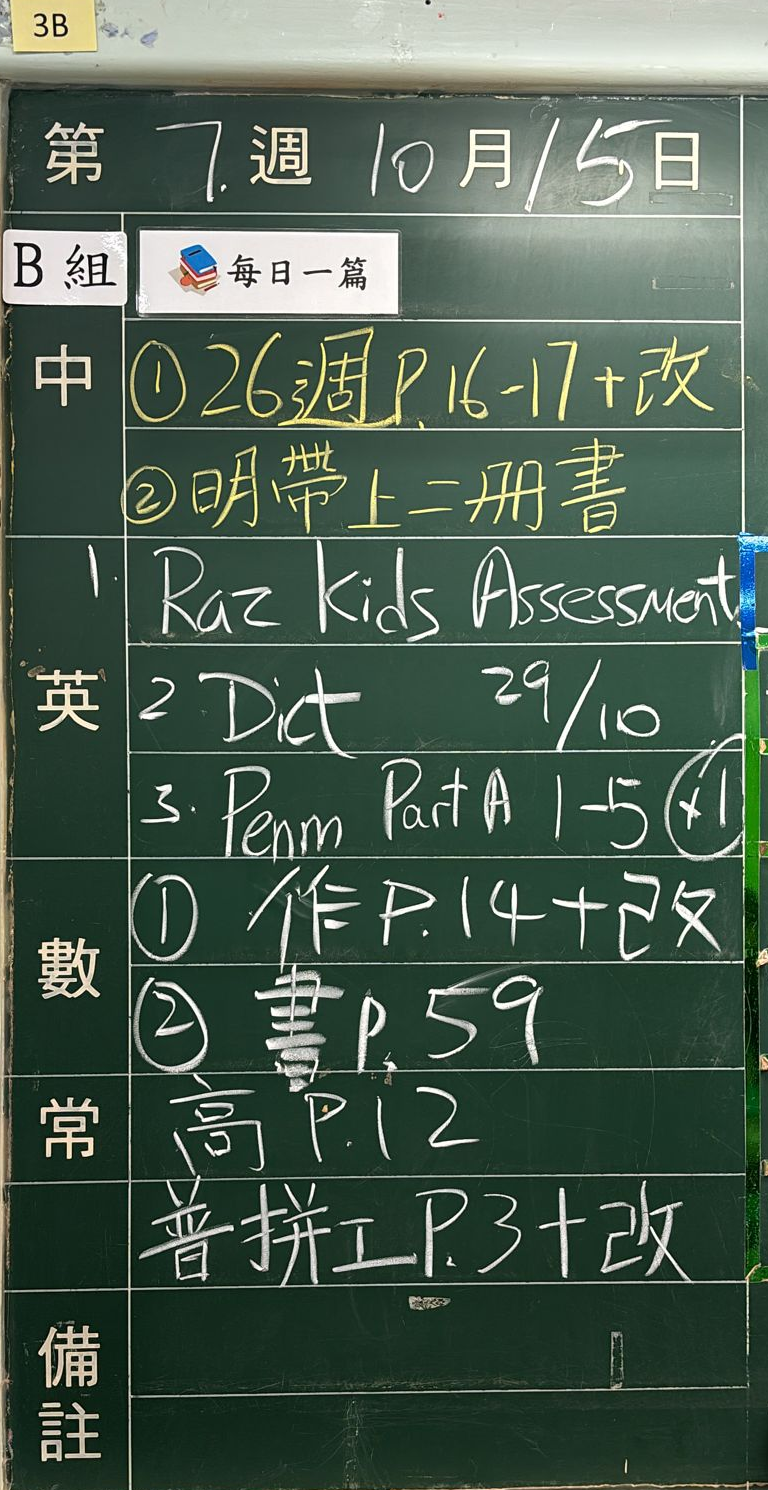 3B
第 7. 週 10 月 15 日
B 組 每日一篇
中 ① 26週 P.16-17+改
② 明帶上二冊書
1. Raz Kids Assessment
英 2 Dict 29/10
3. Penm Part A 1-5 (x1)
① 作 P.14+改
數 ② 書 P.59
常 高 P.12
普拼工 P.3+改
備註